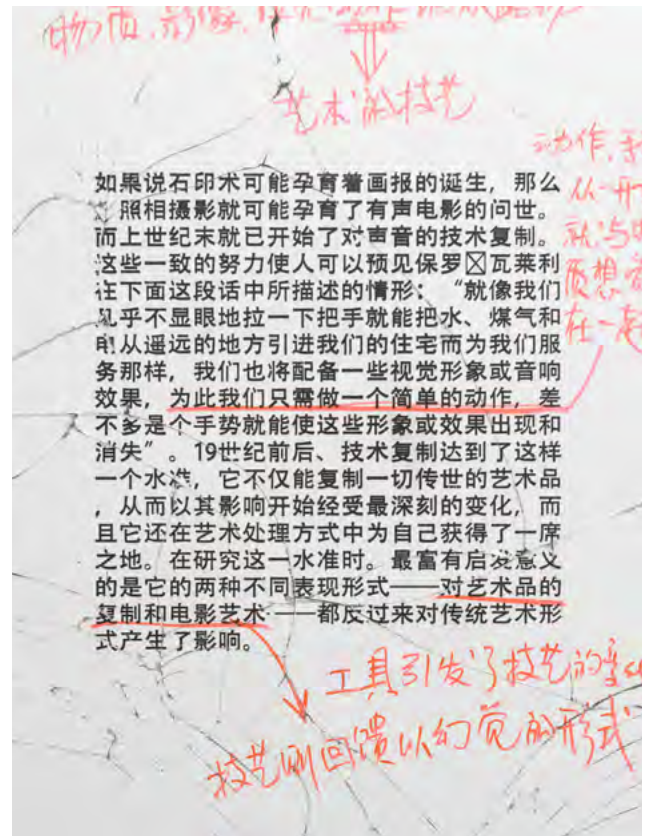 物质、影像、
艺术的技艺
动作、
从一开
就与
质想
在一起
如果说石印术可能孕育着画报的诞生，那么
，照相摄影就可能孕育了有声电影的问世。
而上世纪末就已开始了对声音的技术复制。
这些一致的努力使人可以预见保罗☒瓦莱利
在下面这段话中所描述的情形：“就像我们
几乎不显眼地拉一下把手就能把水、煤气和
电从遥远的地方引进我们的住宅而为我们服
务那样，我们也将配备一些视觉形象或音响
效果，为此我们只需做一个简单的动作，差
不多是个手势就能使这些形象或效果出现和
消失”。19世纪前后、技术复制达到了这样
一个水准，它不仅能复制一切传世的艺术品
，从而以其影响开始经受最深刻的变化，而
且它还在艺术处理方式中为自己获得了一席
之地。在研究这一水准时。最富有启发意义
的是它的两种不同表现形式——对艺术品的
复制和电影艺术——都反过来对传统艺术形
式产生了影响。
工具引发了技艺的变
技艺则回馈以幻觉的形式